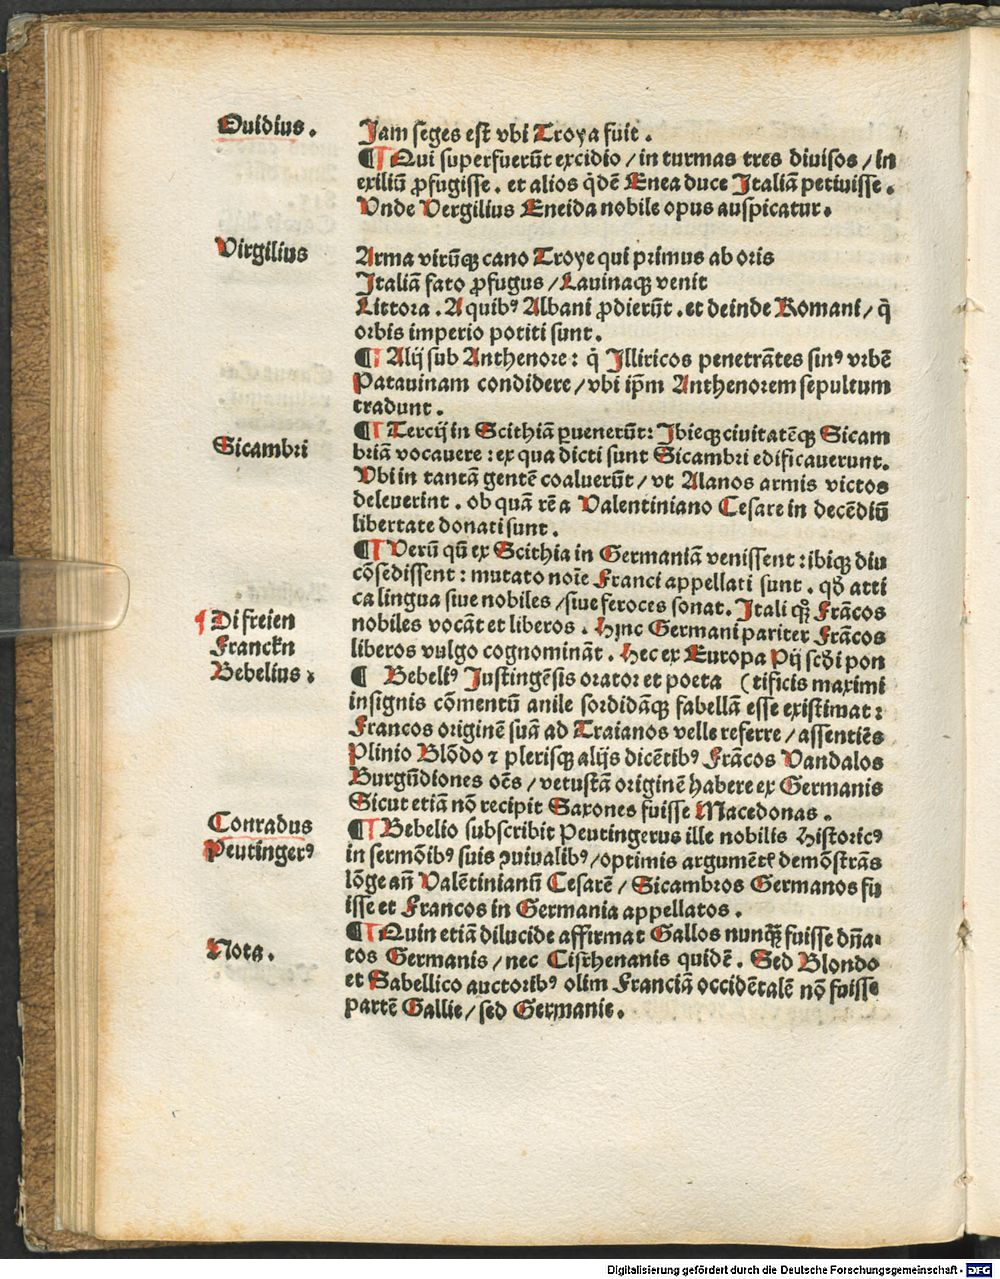 Ouidius .
Jam seges est vbi Troya fuit .
¶ Qui superfuerūt excidio / in turmas tres diuisos / in
exiliū ꝓfugisse . et alios q̇dē Enea duce Italiā petiuisse .
Vnde Vergilius Eneida nobile opus auspicatur .
Virgilius
Arma virūqꝫ cano Troye qui primus ab oris
Italiā fato ꝓfugus / Lauinaqꝫ venit
Littora . A quibꝰ Albani ꝓdierūt . et deinde Romani / q̇
orbis imperio potiti sunt .
¶ Alij sub Anthenore : q̇ Illiricos penetrātes sinꝰ vrbē
Patauinam condidere / vbi ip̄m Anthenorem sepultum
tradunt .
¶ Tercij in Scithiā ꝑuenerūt : Ibieqꝫ ciuitatēqꝫ Sicam
Sicambri
briā vocauere : ex qua dicti sunt Sicambri edificauerunt .
Vbi in tantā gentē coaluerūt / vt Alanos armis victos
deleuerint . ob quā rē a Valentiniano Cesare in decēdiū
libertate donati sunt .
¶ Verū qn̄ ex Scithia in Germaniā venissent : ibiqꝫ diu
cōsedissent : mutato noīe Franci appellati sunt . qđ atti
ca lingua siue nobiles / siue feroces sonat . Itali qꝫ Frācos
¶ Di freien
nobiles vocāt et liberos . Hinc Germani pariter Frācos
Franckn
liberos vulgo cognomināt . Hec ex Europa Pij scđi pon
Bebelius .
¶ Bebeliꝰ Justingēsis orator et poeta (tificis maximi
insignis cōmentū anile sordidāqꝫ fabellā esse existimat :
Francos originē suā ad Traianos velle referre / assentiēs
Plinio Blōdo ⁊ plerisqꝫ alijs dicētibꝰ Frācos Vandalos
Burgūdiones oēs / vetustā originē habere ex Germanis
Sicut etiā nō recipit Saxones fuisse Macedonas .
Conradus
¶ Bebelio subscribit Peutingerus ille nobilis Historicꝰ
Peutingerꝰ
in sermōibꝰ suis ꝯuiualibꝰ / optimis argumētꝭ demōstrās
lōge an̄ Valētinianū Cesarē / Sicambros Germanos fu
isse et Francos in Germania appellatos .
¶ Quin etiā dilucide affirmat Gallos nunqꝫ̄ fuisse dn̄a-
Nota .
tos Germanis / nec Cisrhenanis quidē . Sed Blondo
et Sabellico auctoribꝰ olim Franciā occidētalē nō fuisse
partē Gallie / sed Germanie .
Digitalisierung gefördert durch die Deutsche Forschungsgemeinschaft - DFG